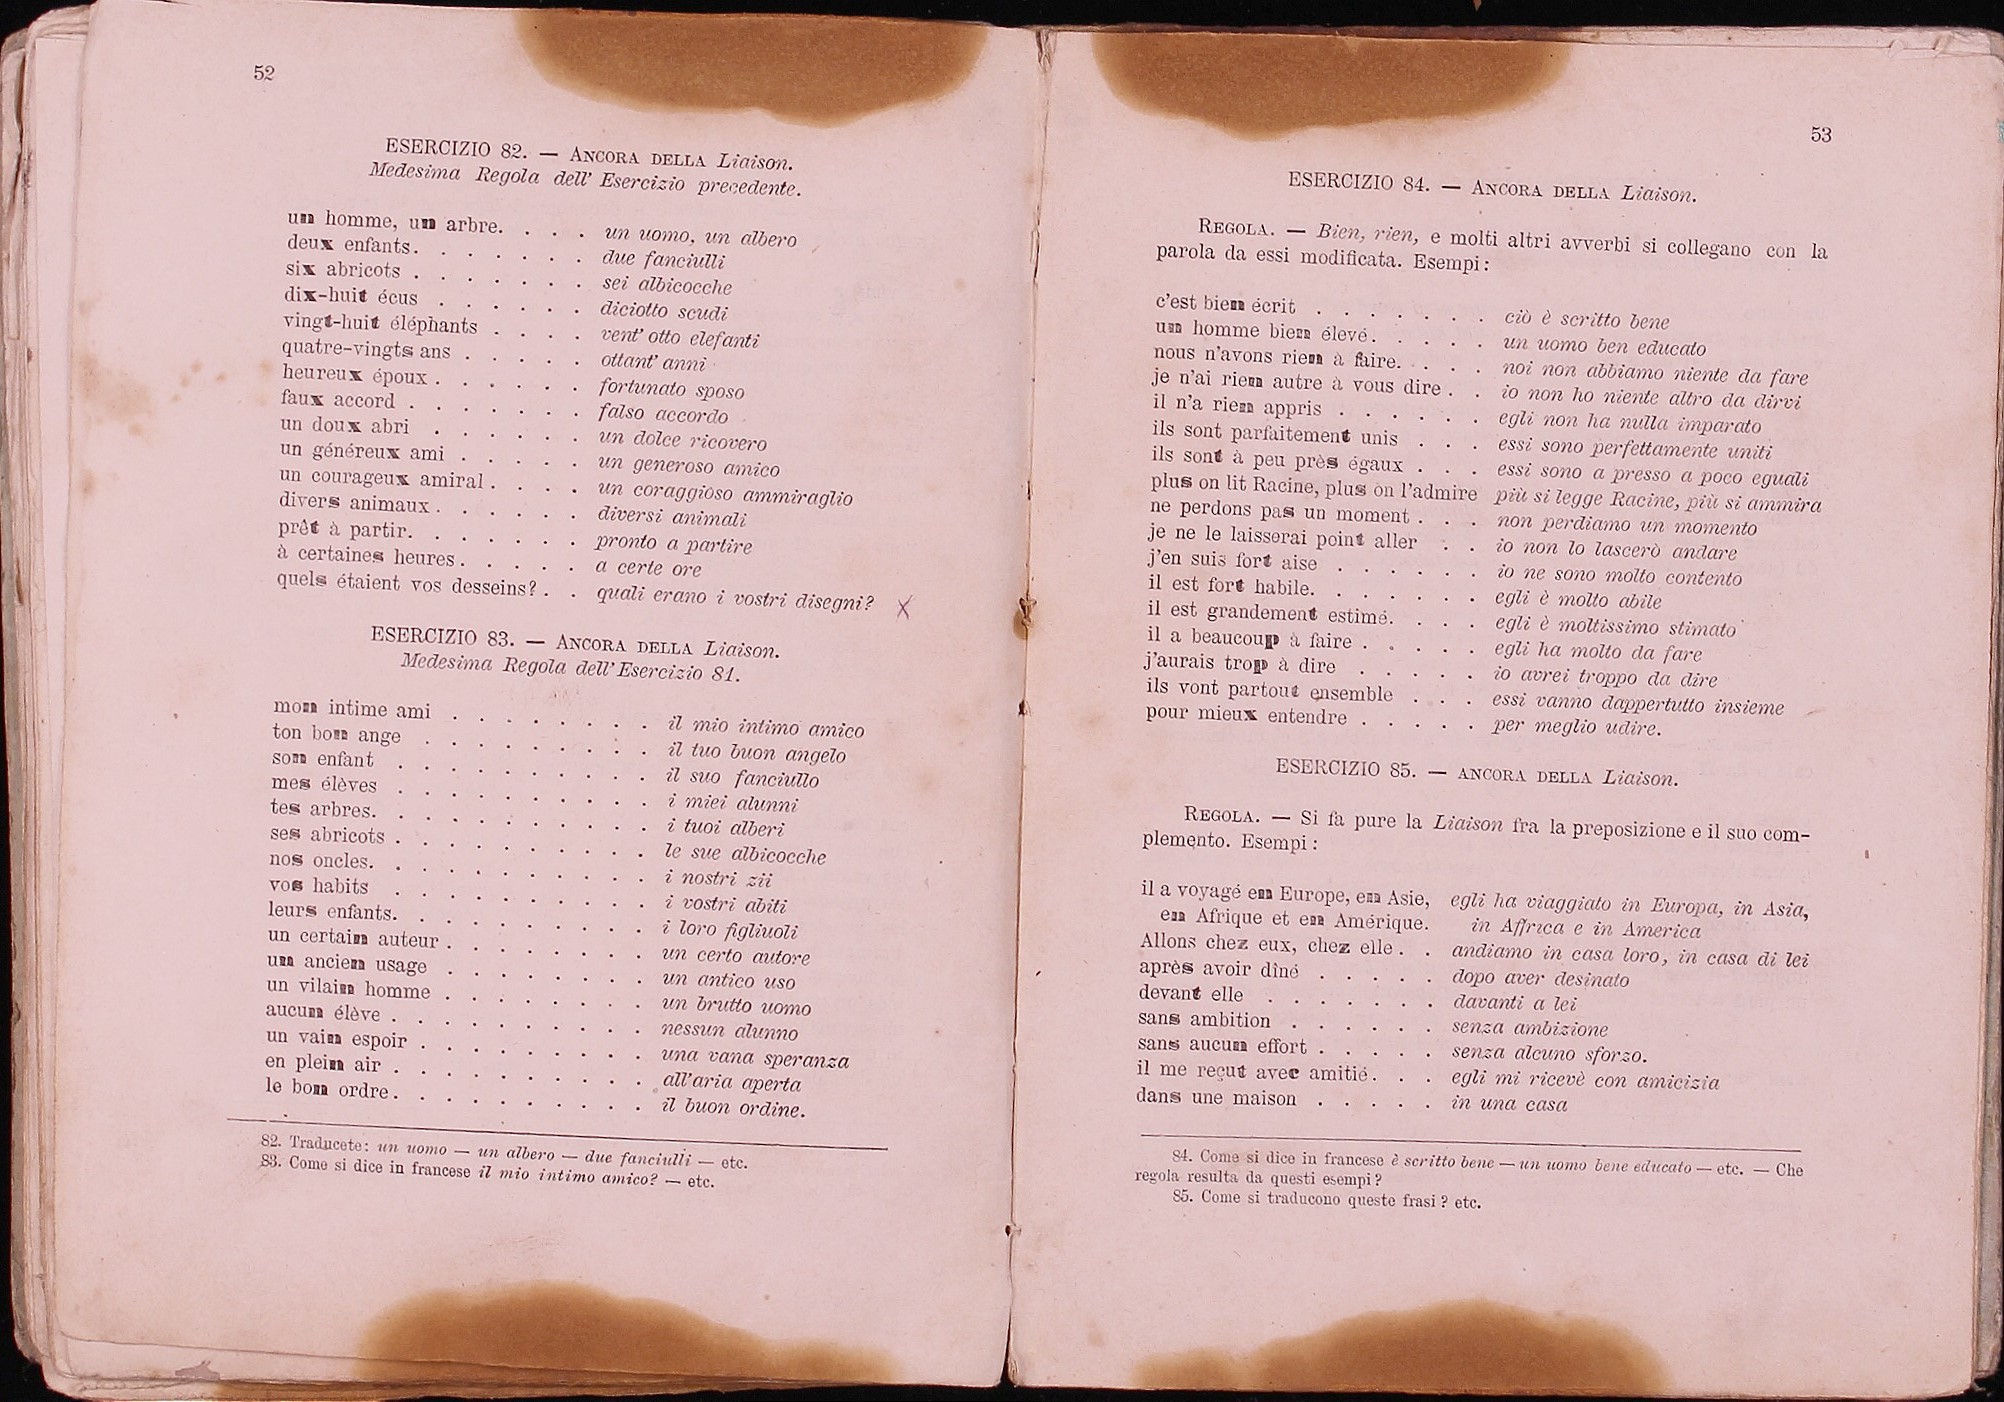 52
ESERCIZIO 82. — ANCORA DELLA Liaison.
Medesima Regola dell' Esercizio precedente.
un homme, un arbre. . . . . un uomo, un albero
deux enfants. . . . . . . due fanciulli
six abricots . . . . . . . sei albicocche
dix-huit écus . . . . . . diciotto scudi
vingt-huit éléphants . . . . vent' otto elefanti
quatre-vingts ans . . . . . ottant' anni
heureux époux . . . . . . fortunato sposo
faux accord . . . . . . . falso accordo
un doux abri . . . . . . un dolce ricovero
un généreux ami . . . . . un generoso amico
un courageux amiral . . . . un coraggioso ammiraglio
divers animaux . . . . . . diversi animali
prêt à partir. . . . . . . pronto a partire
à certaines heures. . . . . a certe ore
quels étaient vos desseins? . . quali erano i vostri disegni?
ESERCIZIO 83. — ANCORA DELLA Liaison.
Medesima Regola dell'Esercizio 81.
mon intime ami . . . . . . . . il mio intimo amico
ton bon ange . . . . . . . . . il tuo buon angelo
son enfant . . . . . . . . . . il suo fanciullo
mes élèves . . . . . . . . . . i miei alunni
tes arbres. . . . . . . . . . . i tuoi alberi
ses abricots . . . . . . . . . . le sue albicocche
nos oncles. . . . . . . . . . . i nostri zii
vos habits . . . . . . . . . . i vostri abiti
leurs enfants. . . . . . . . . . i loro figliuoli
un certain auteur . . . . . . . . un certo autore
un ancien usage . . . . . . . . un antico uso
un vilain homme . . . . . . . . un brutto uomo
aucun élève . . . . . . . . . . nessun alunno
un vain espoir . . . . . . . . . una vana speranza
en plein air . . . . . . . . . . all'aria aperta
le bon ordre. . . . . . . . . . il buon ordine.
82. Traducete: un uomo — un albero — due fanciulli — etc.
83. Come si dice in francese il mio intimo amico? — etc.
53
ESERCIZIO 84. — ANCORA DELLA Liaison.
REGOLA. — Bien, rien, e molti altri avverbi si collegano con la
parola da essi modificata. Esempi:
c'est bien écrit . . . . . . . ciò è scritto bene
un homme bien élevé. . . . . un uomo ben educato
nous n'avons rien à faire. . . . noi non abbiamo niente da fare
je n'ai rien autre à vous dire . . io non ho niente altro da dirvi
il n'a rien appris . . . . . . egli non ha nulla imparato
ils sont parfaitement unis . . . essi sono perfettamente uniti
ils sont à peu près égaux . . . essi sono a presso a poco eguali
plus on lit Racine, plus on l'admire più si legge Racine, più si ammira
ne perdons pas un moment . . . non perdiamo un momento
je ne le laisserai point aller . . io non lo lascerò andare
j'en suis fort aise . . . . . . io ne sono molto contento
il est fort habile. . . . . . . egli è molto abile
il est grandement estimé. . . . egli è moltissimo stimato
il a beaucoup à faire . . . . . egli ha molto da fare
j'aurais trop à dire . . . . . io avrei troppo da dire
ils vont partout ensemble . . . essi vanno dappertutto insieme
pour mieux entendre . . . . . per meglio udire.
ESERCIZIO 85. — ANCORA DELLA Liaison.
REGOLA. — Si fa pure la Liaison fra la preposizione e il suo com-
plemento. Esempi:
il a voyagé en Europe, en Asie, egli ha viaggiato in Europa, in Asia,
en Afrique et en Amérique. in Affrica e in America
Allons chez eux, chez elle . . andiamo in casa loro, in casa di lei
après avoir dîné . . . . . dopo aver desinato
devant elle . . . . . . . davanti a lei
sans ambition . . . . . . senza ambizione
sans aucun effort . . . . . senza alcuno sforzo.
il me reçut avec amitié. . . egli mi ricevè con amicizia
dans une maison . . . . . in una casa
84. Come si dice in francese è scritto bene — un uomo bene educato — etc. — Che
regola resulta da questi esempi?
85. Come si traducono queste frasi? etc.